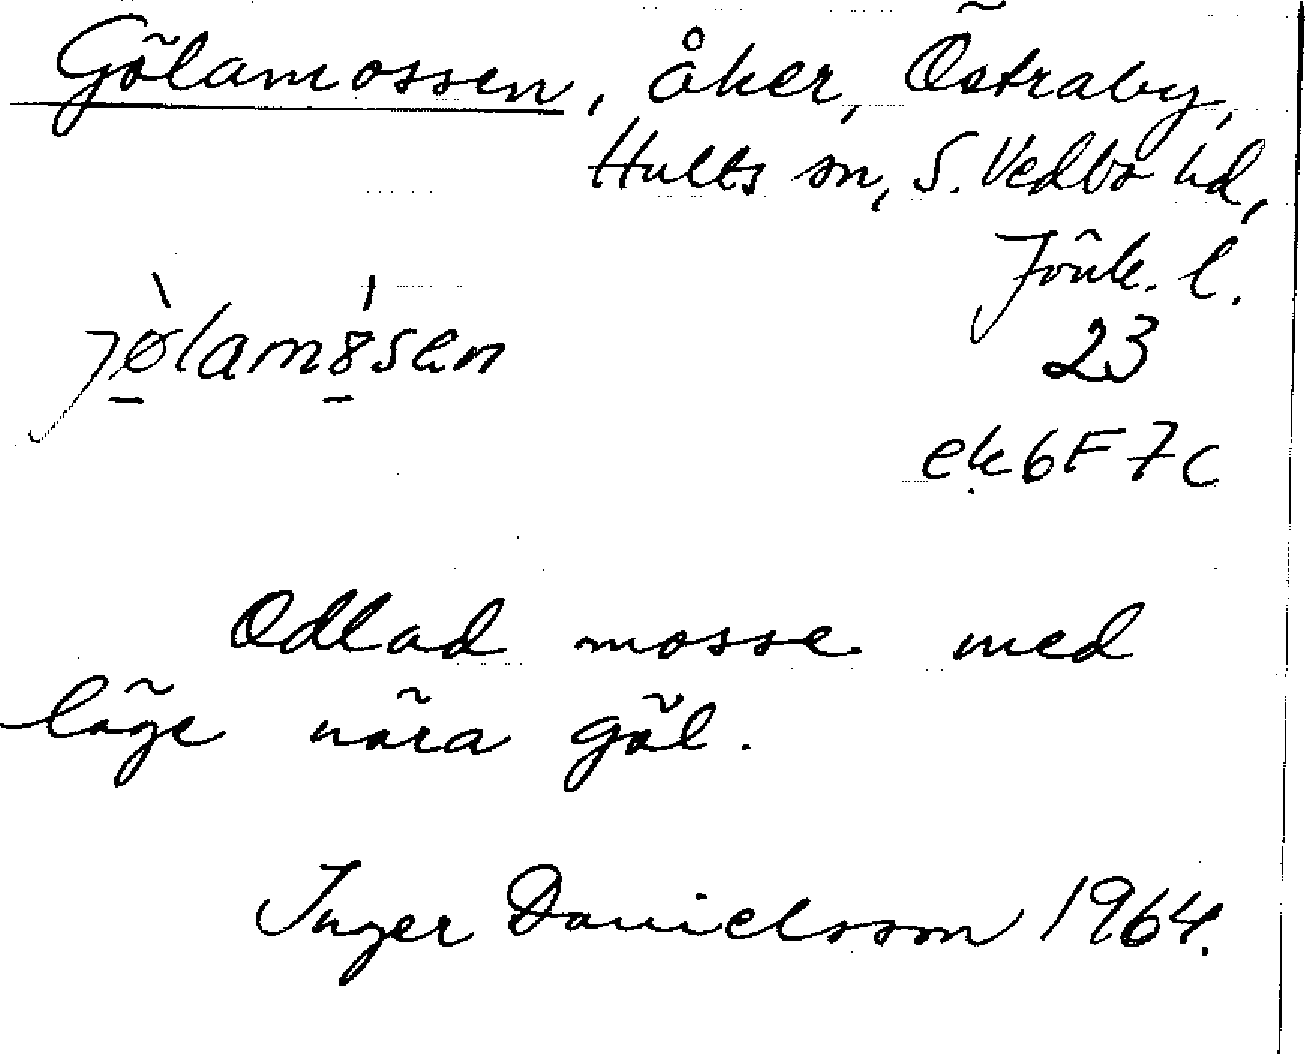 Gölamossen, åker, Östraby,
Hults sn, S. Vedbo hd,
Jönk. l.
jø̱̀lamȣ̱́sen
23
ek 6F 7c
Odlad mosse med
läge nära göl.
Inger Danielsson 1964.